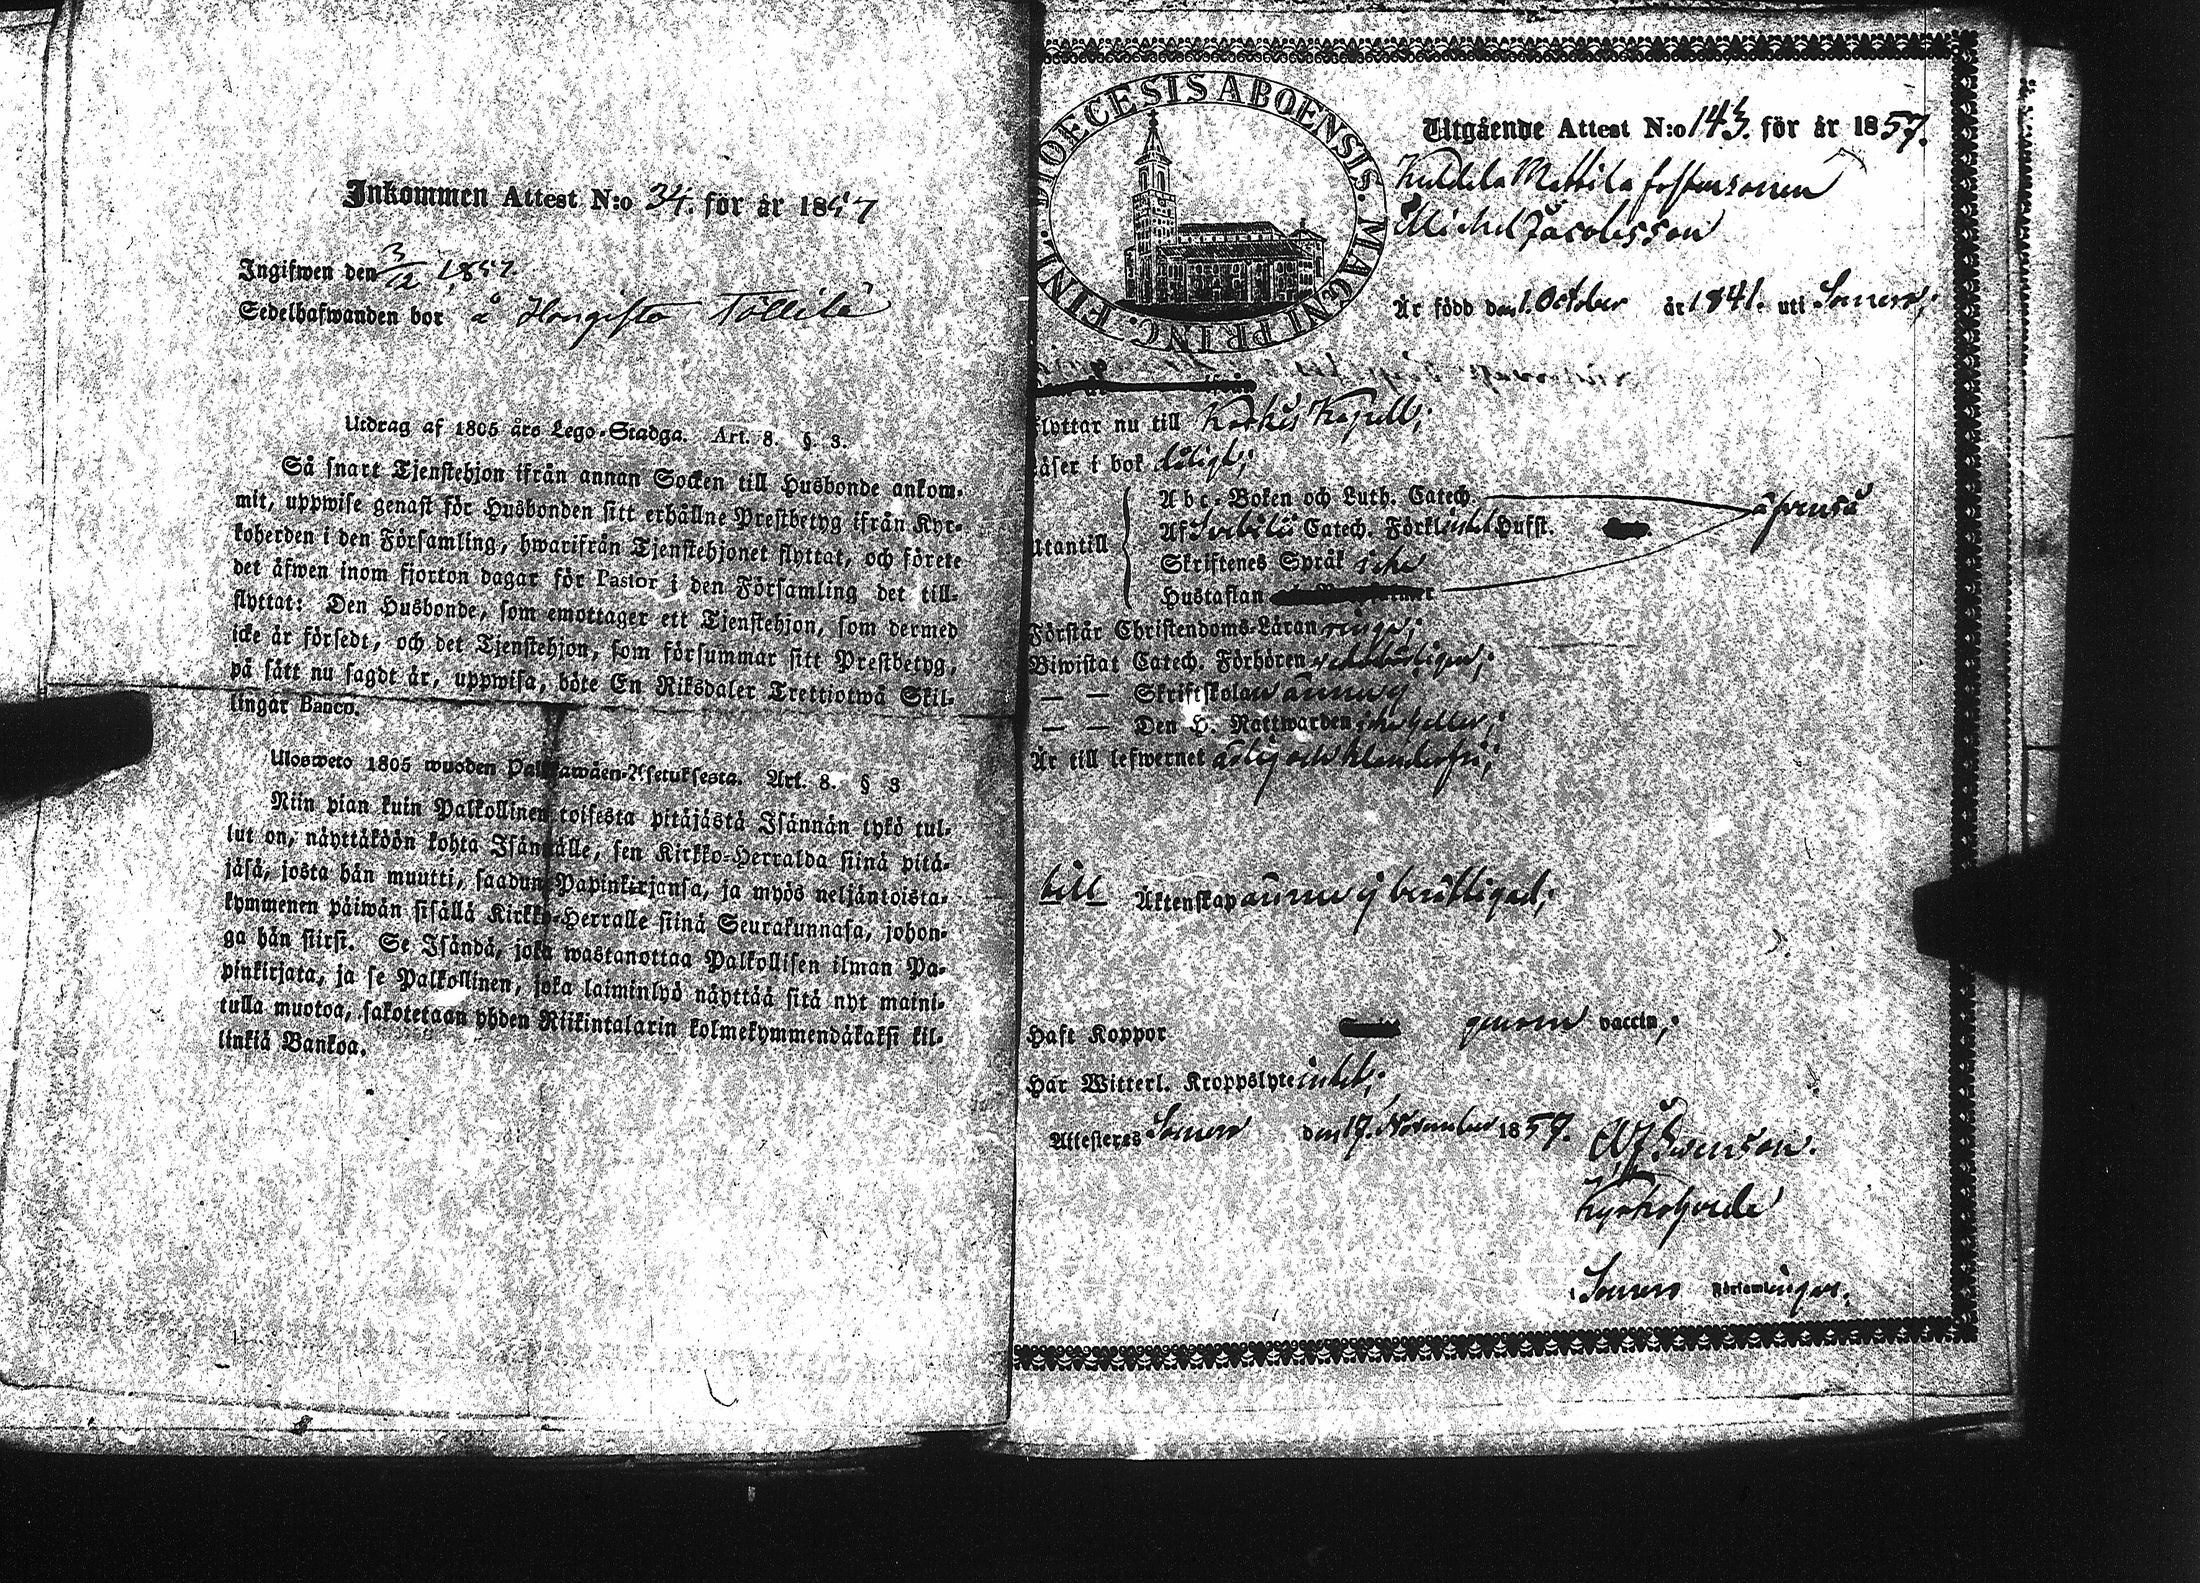 Inkommen Attest N:o 34. för år 1857
Ingifwen den 3/12 1857
Sedelhafwanden bor å Hongisto Töllilä
Utdrag af 1805 års Lego-Stadga. Art. 8. §. 3.
Så snart Tjenstehjon ifrån annan Socken till Husbonde ankom-
mit, uppwise genast för Husbonden sitt erhållne Prestbetyg ifrån Kyr-
koherden i den Församling, hwarifrån Tjenstehjonet flyttat, och förete
det äfwen inom fjorton dagar för Pastor i den Församling det till-
flyttat: Den Husbonde, som emottager ett Tjenstehjon, som dermed
icke är försedt, och det Tjenstehjon, som försummar sitt Prestbetyg,
på sätt nu sagdt är, uppwisa, böte En Riksdaler Trettiotwå Skil-
lingar Banco.
Ulosweto 1805 wuoden Palkkawäen-Asetuksesta. Art. 8. § 3
Niin pian kuin Palkollinen toisesta pitäjästä Isännän tykö tul-
lut on, näyttäköön kohta Isännälle, sen Kirkko-Herralda siinä pitä-
jäsä, josta hän muutti, saadun Papinkirjansa, ja myös neljäntoista-
kymmenen päiwän sisällä Kirkko-Herralle siinä Seurakunnasa, johon-
ga hän siirsi. Se Isändä, joka wastanottaa Palkollisen ilman Pa-
pinkirjata, ja se Palkollinen, joka laiminlyö näyttää sitä nyt maini-
tulla muotoa, sakotetaan yhden Riikintalarin kolmekymmendäkaksi kil-
linkiä Bankoa.
DIOECESIS ABOENSIS. MAGNI PRINC. FINL.
Utgående Attest N:o 143. för år 1857.
Mattila fostersonen
Michel Jacobsson
Är född den 1. October år 1841. uti Somero;
flyttar nu till Koskis Kapell;
läser i bok
Utantill
Abc-Boken och Luth. Catech.
Af Svebilii Catech. Förkl. intet Hufst.
Skriftenes Språk icke
Hustaflan
Förstår Christendoms-Läran ringa;
Biwistat Catech. Förhören
— — Skriftskolan ännu ej
— — Den H. Nattwarden icke heller;
Är till lefwernet ärlig och klanderfri;
till Äktenskap ännu ej berättigad;
Haft Koppor genom vaccin;
Har Witterl. Kroppslyte intet;
Attesteras Somero den 17. November 1857.
Kyrkoherde
i Somero Församlingar.